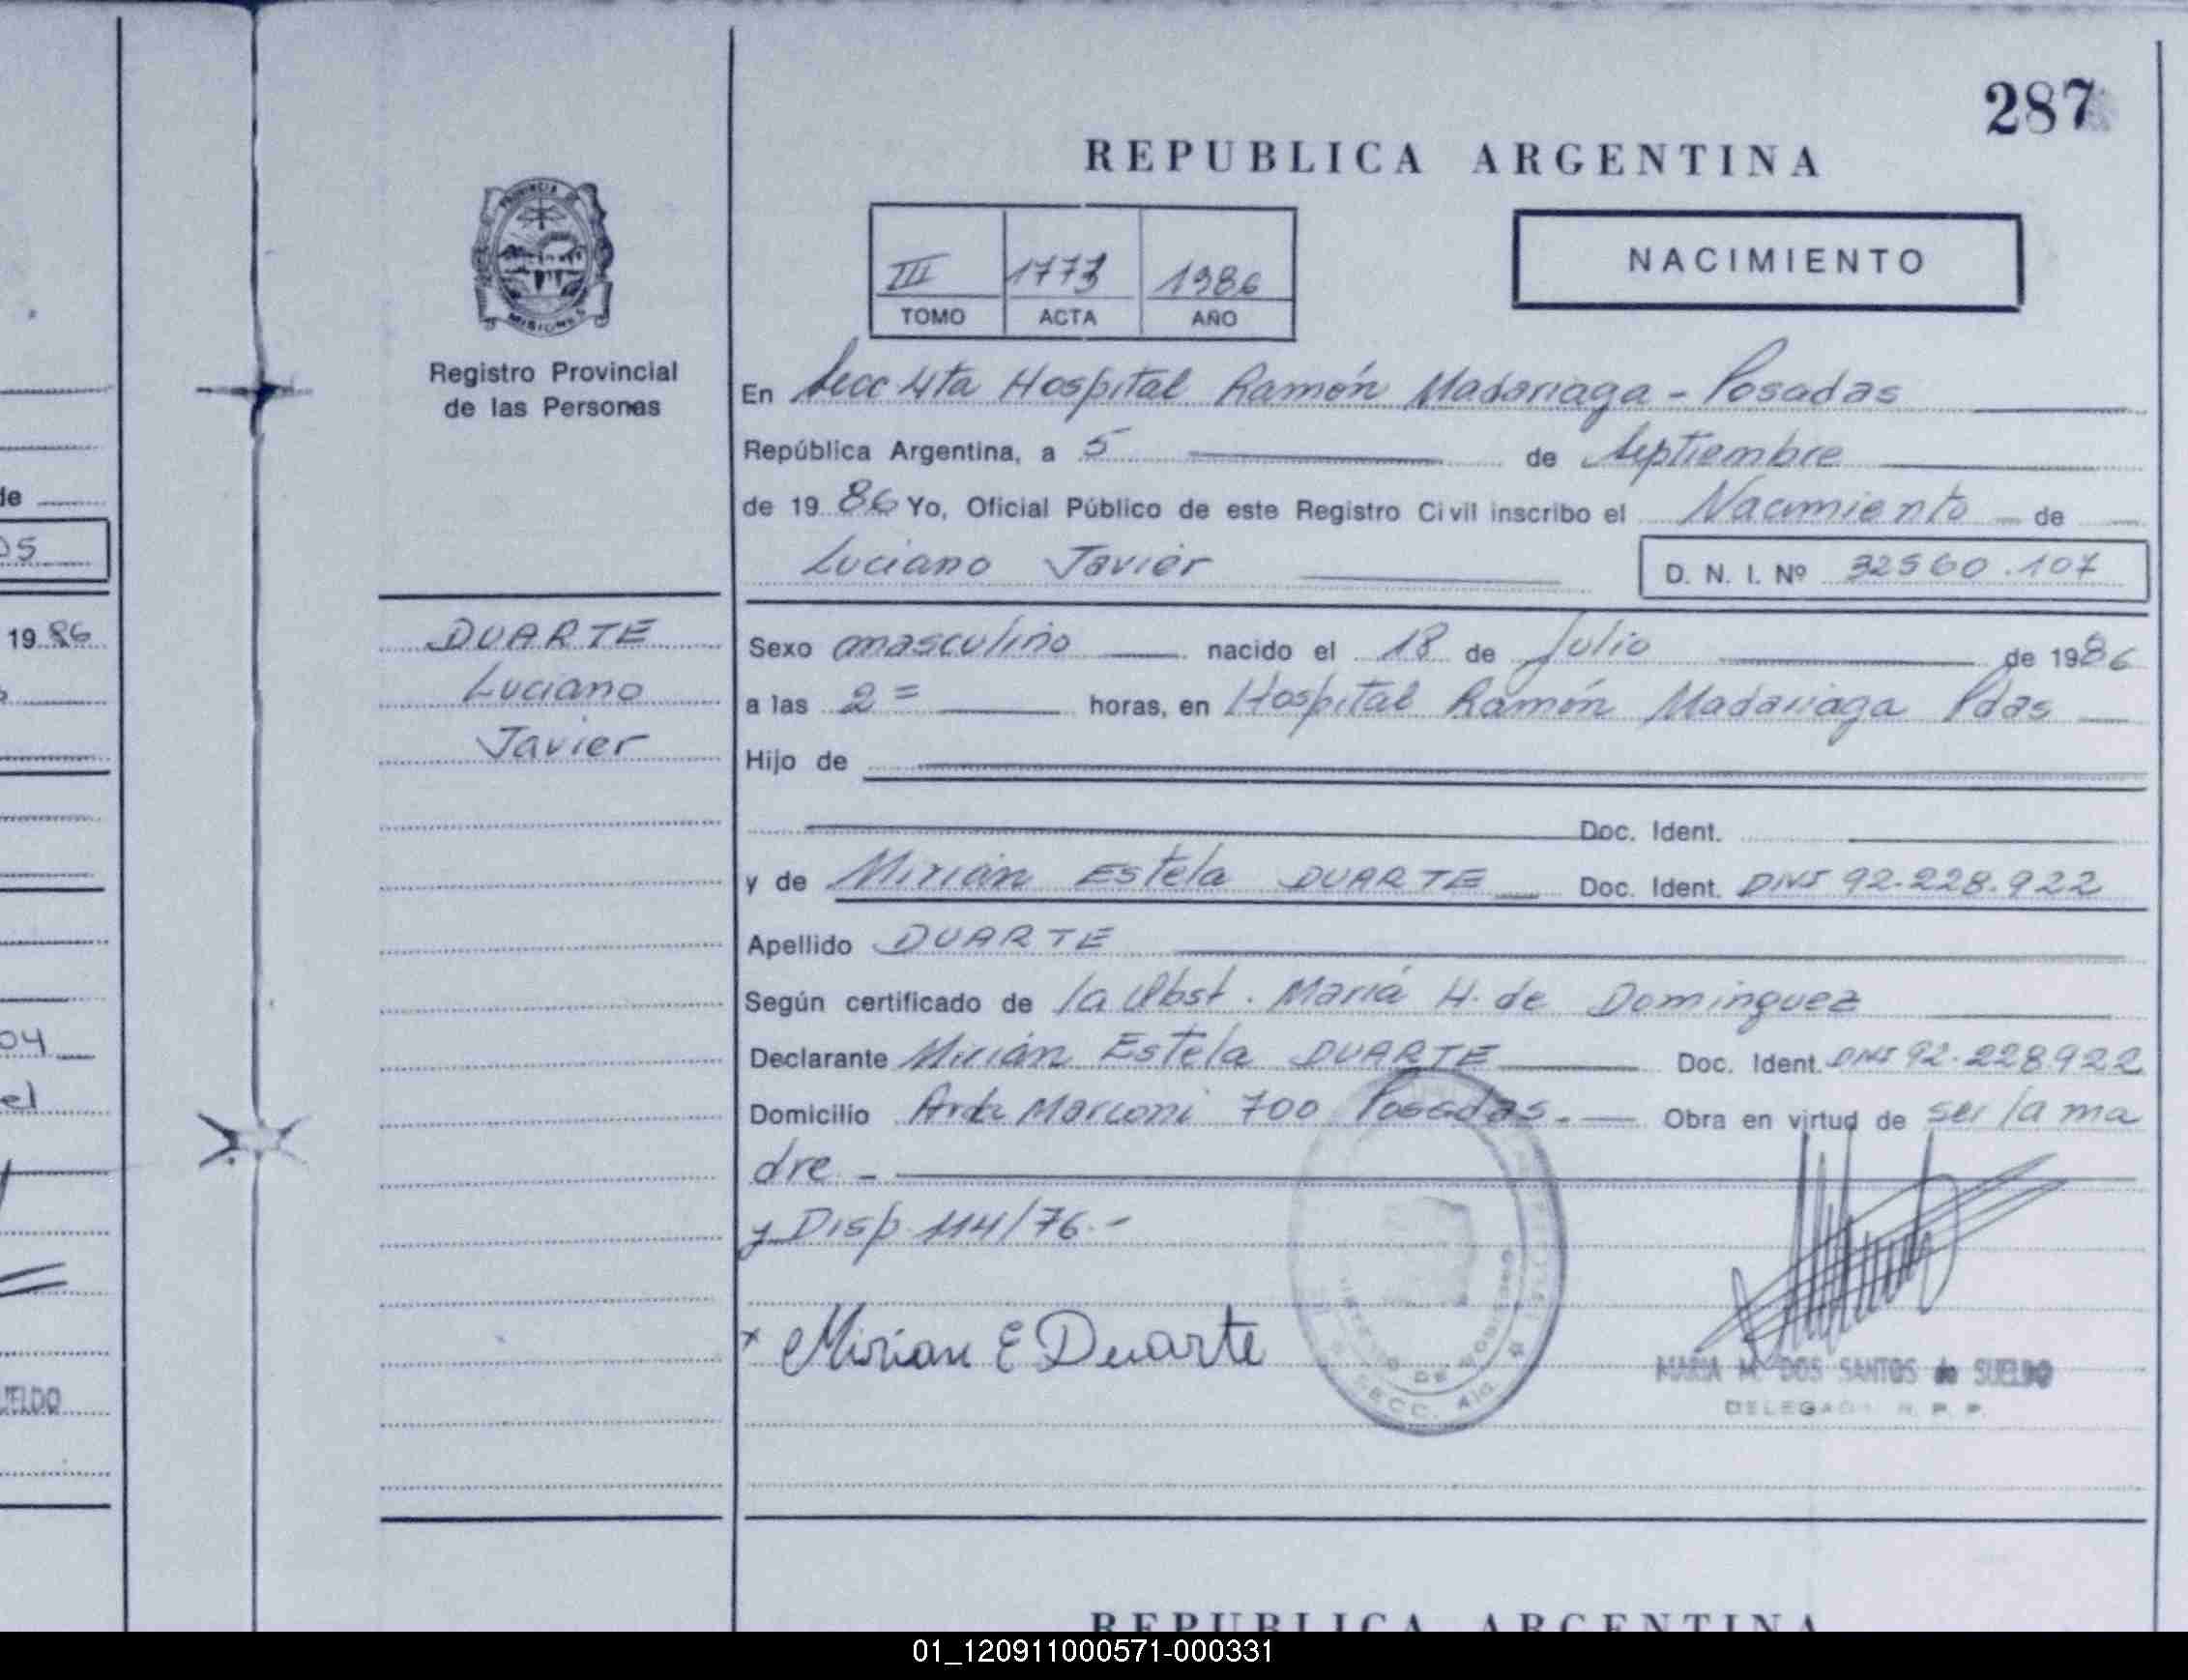 287
REPUBLICA ARGENTINA
PROVINCIA
MISIONES
III 1773 1986
TOMO ACTA AÑO
NACIMIENTO
Registro Provincial
de las Personas
En Secc 4ta Hospital Ramón Madariaga - Posadas
República Argentina, a 5 de Septiembre
de 1986 Yo, Oficial Público de este Registro Civil inscribo el Nacimiento de
Luciano Javier D. N. I. Nº 32560.107
DUARTE
Luciano
Javier
Sexo masculino nacido el 18 de Julio de 1986
a las 2= horas, en Hospital Ramón Madariaga Pdas
Hijo de
Doc. Ident.
y de Mirián Estela DUARTE Doc. Ident. DNI 92.228.922
Apellido DUARTE
Según certificado de la Obst. María H. de Dominguez
Declarante Mirián Estela DUARTE Doc. Ident. DNI 92.228.922
Domicilio Avda Marconi 700 Posadas.- Obra en virtud de ser la ma
dre -
y Disp 114/76.-
x Mirian E Duarte
SECC. 4ta.
MARIA M. DOS SANTOS de SUELDO
DELEGADA R. P. P.
de
05
1986
04
el
UELDO
REPUBLICA ARGENTINA
01_120911000571-000331